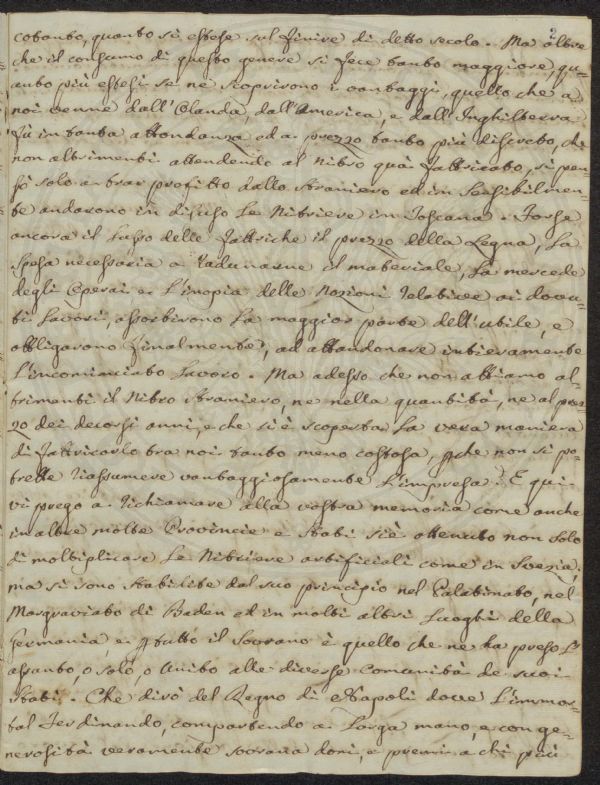 2
cotanto, quanto si estese sul finire di detto secolo. Ma oltre
che il consumo di questo genere si fece tanto maggiore, qu-
anto più estesi se ne scoprirono i vantaggi, quello che a
noi venne dall'Olanda, dall'America, e dall'Inghilterra
fu in tanta abbondanza ed a prezzo tanto più discreto, che
non altrimenti attendendo al Nitro quà fabbricato, si pen-
sò solo a trar profitto dallo straniero ed insensibilmen-
te andarono in disuso le Nitriere in Toscana. Forse
ancora il lusso delle fabbriche il prezzo della Legna, la
spesa necessaria a radunarne il materiale, la mercede
degli Operai e l'inopia delle Nozioni relative ai dovu-
ti lavori, assorbirono la maggior parte dell'utile, e
obbligarono finalmente, ad abbandonare intieramente
l'incominciato lavoro. Ma adesso che non abbiamo al-
trimenti il Nitro straniero, ne nella quantità, ne al prez-
zo dei decorsi anni, e che si è scoperta la vera maniera
di fabbricarlo tra noi tanto meno costosa, che non si po-
trebbe riassumere vantaggiosamente l'impresa? E qui
vi prego a richiamare alla vostra memoria come anche
in altre molte Provincie e Stati si è ottenuto non solo
di moltiplicare le Nitriere artificiali come in Svezia,
ma si sono stabilite dal suo principio nel Palatinato, nel
Margraviato di Baden ed in molti altri luoghi della
Germania, e tutto il Sovrano è quello che ne ha preso l'
assunto, o solo, o unito alle diverse Comunità de suoi
Stati. Che dirò del Regno di Napoli dove l'immor-
tal Ferdinando, compartendo a larga mano, e con ge-
nerosità veramente sovrana doni, e premi a chi più